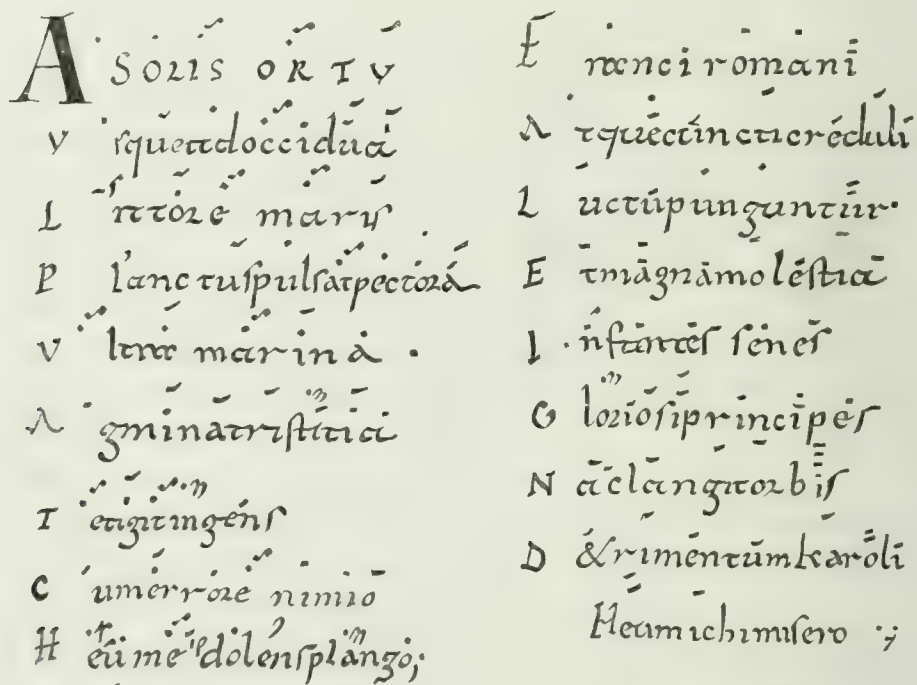 A SOLIS ORTV
V squeadoccidua
L ittore maris
P lanctuspulsatpectora
V ltra marina .
A gminatristitia
T etigitingens
C umerrore nimio
H eu me dolensplango;
F ranci romani
A tquecuncticreduli
L uctupunguntur.
E tmagnamolestia
I . nfantes senes
G loriosiprincipes
N āclangitorbis
D &rimentumkaroli
Heumichimisero ·;